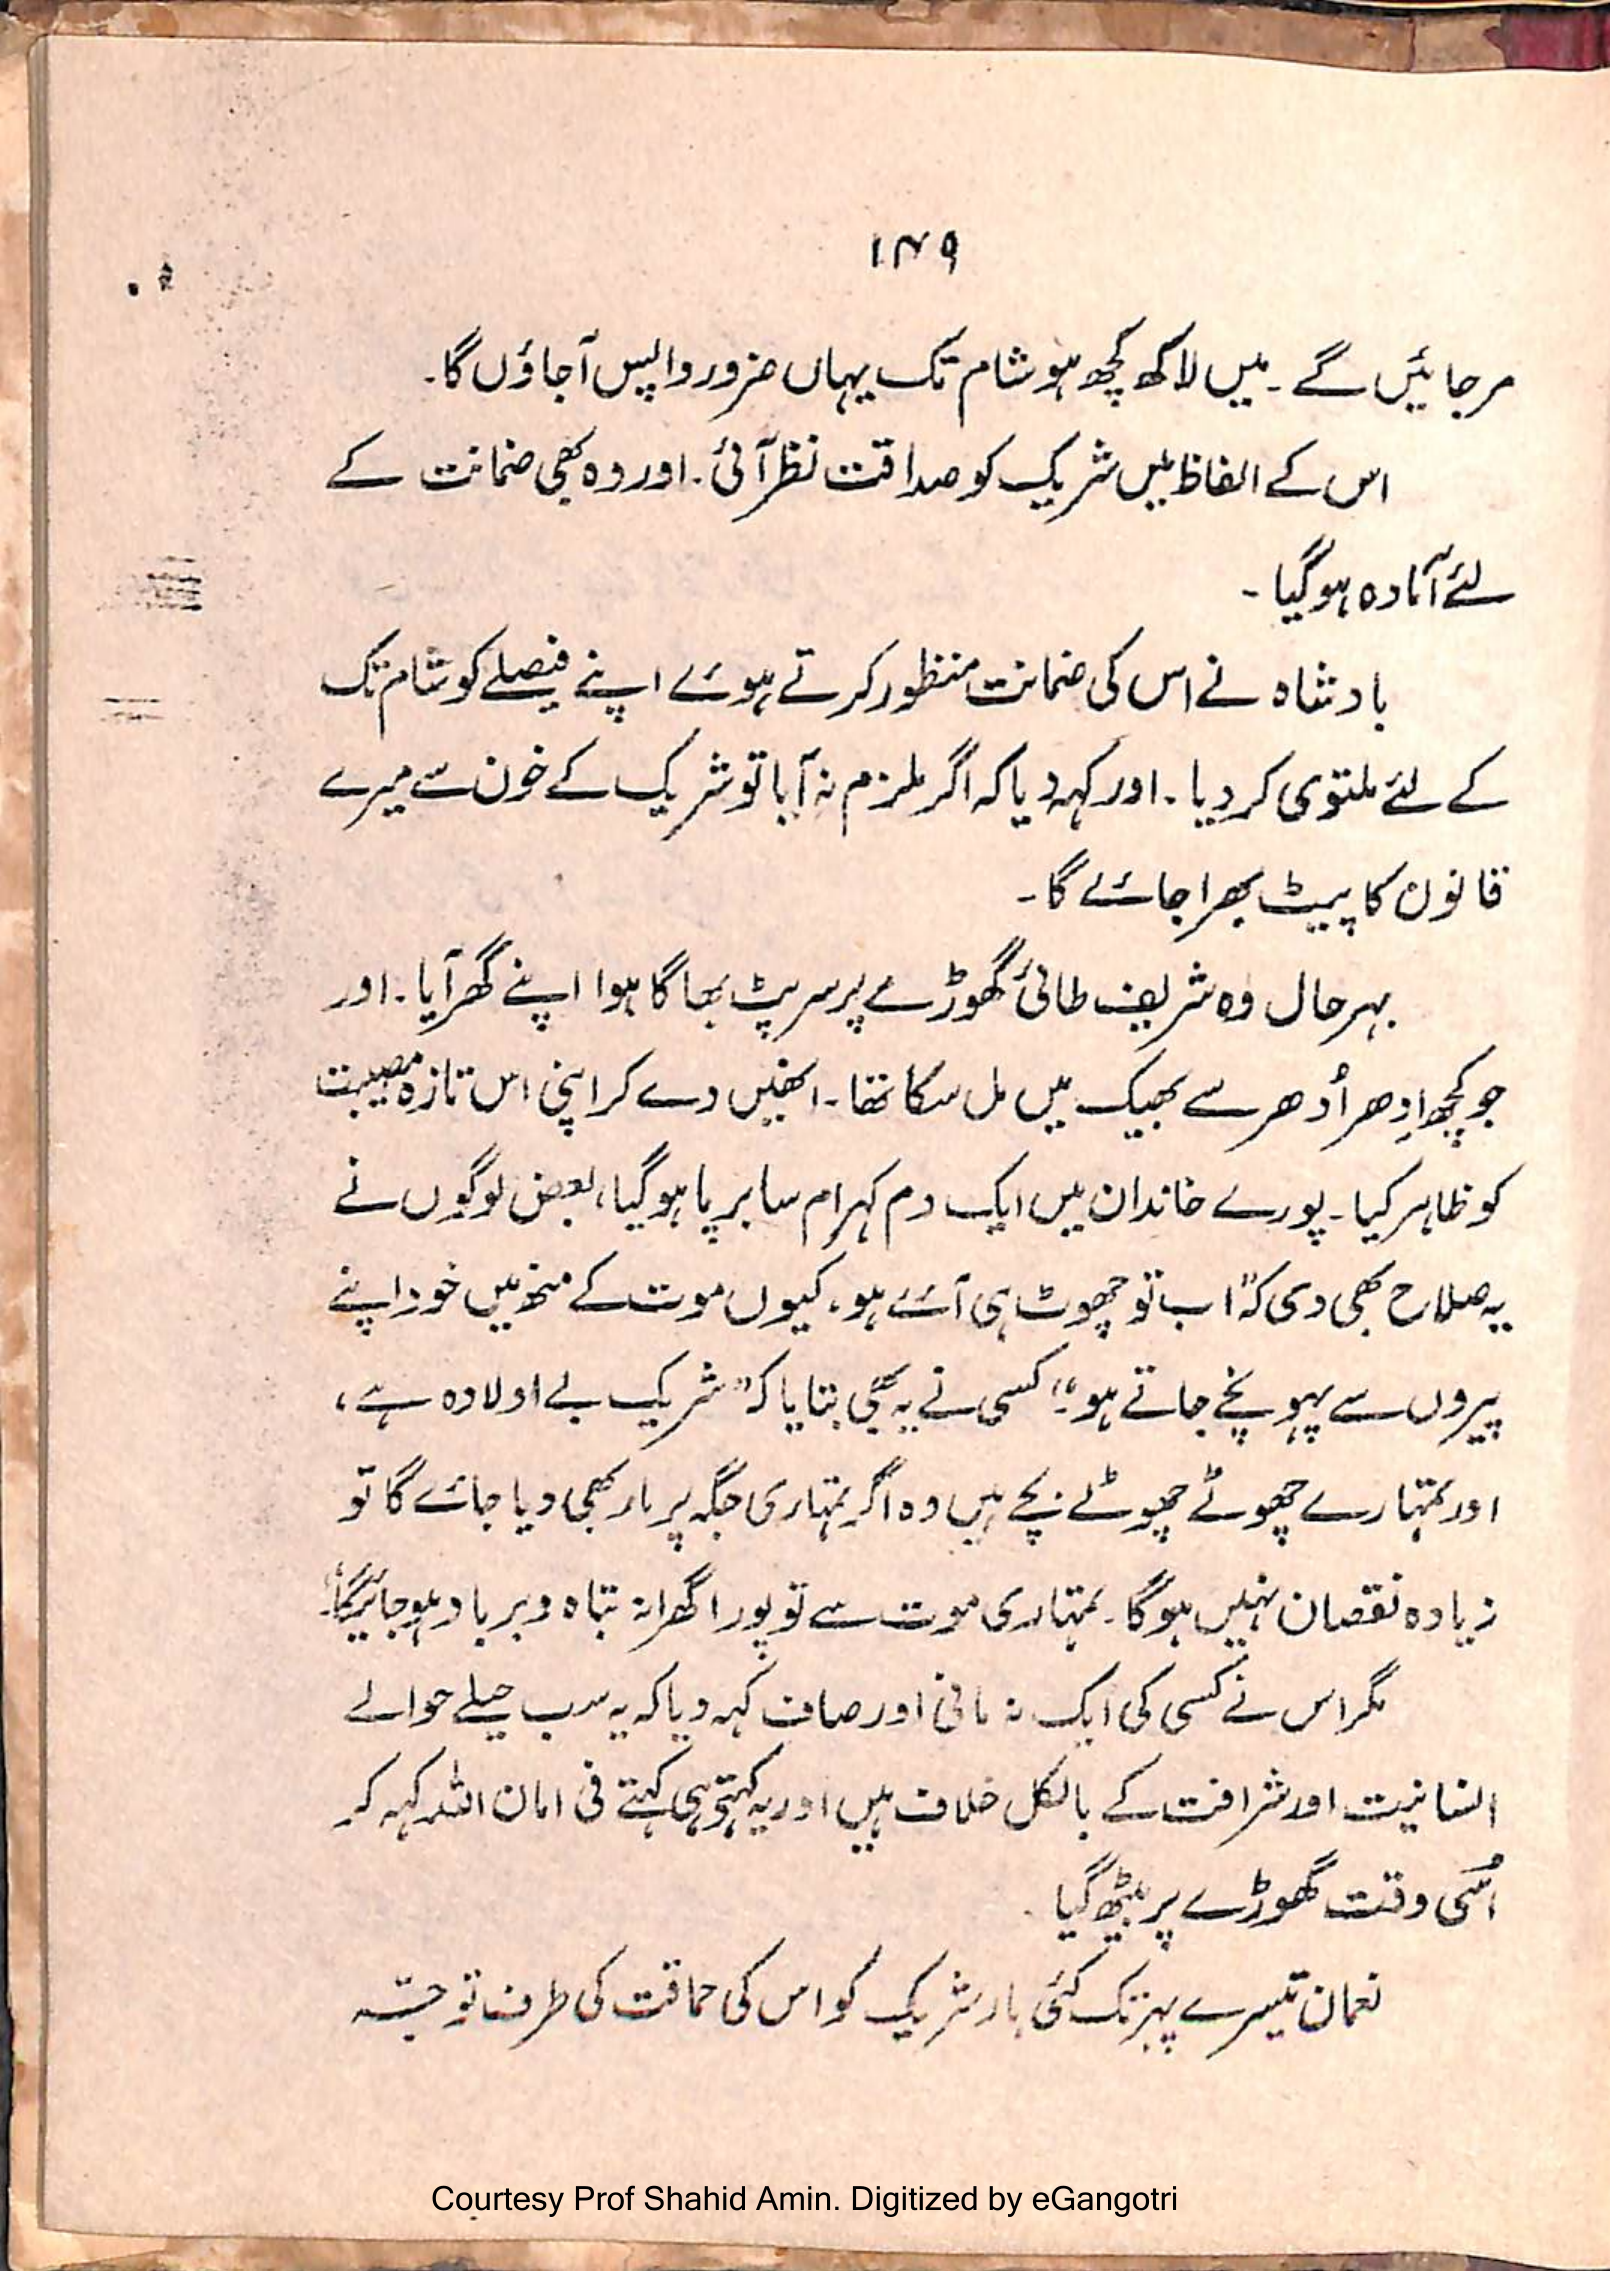 ۱۴۹
مرجائیں گے ۔ میں لاکھ کچھ ہو شام تک یہاں ضرور واپس آجاؤں گا۔
اس کے الفاظ میں شریک کو صداقت نظر آئی ۔ اور وہ بھی ضمانت کے
لئے آمادہ ہوگیا ۔
بادشاہ نے اس کی ضمانت منظور کرتے ہوئے اپنے فیصلے کو شام تک
کے لئے ملتوی کر دیا ۔ اور کہہ دیا کہ اگر ملزم نہ آیا تو شریک کے خون سے میرے
قانون کا پیٹ بھرا جائے گا۔
بہرحال وہ شریف طائی گھوڑے پر سرپٹ بھاگا ہوا اپنے گھر آیا ۔ اور
جو کچھ اِدھر اُدھر سے بھیک میں مل سکا تھا ۔ انھیں دے کر اپنی اس تازہ مصیبت
کو ظاہر کیا ۔ پورے خاندان میں ایک دم کہرام سا برپا ہوگیا، بعض لوگوں نے
یہ صلاح بھی دی کہ" اب تو چھوٹ ہی آئے ہو، کیوں موت کے منھ میں خود اپنے
پیروں سے پہونچے جاتے ہو"؛ کسی نے یہ بھی بتایا کہ" شریک بے اولادہ ہے،
اور تمہارے چھوٹے چھوٹے بچے ہیں وہ اگر تمہاری جگہ پر مار بھی دیا جائے گا تو
زیادہ نقصان نہیں ہوگا ۔ تمہاری موت سے تو پورا گھرانہ تباہ و برباد ہوجائیگا"۔
مگر اس نے کسی کی ایک نہ مانی اور صاف کہہ دیا کہ یہ سب حیلے حوالے
انسانیت اور شرافت کے بالکل خلاف ہیں اور یہ کہتے ہی کہتے فی امان اللہ کہہ کر
اُسی وقت گھوڑے پر بیٹھ گیا ۔
نعمان تیسرے پہر تک کئی بار شریک کو اس کی حماقت کی طرف توجہ
Courtesy Prof Shahid Amin. Digitized by eGangotri